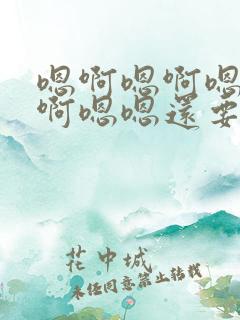 嗯啊嗯啊嗯
啊嗯嗯还要
花中城
未经同意禁止转载